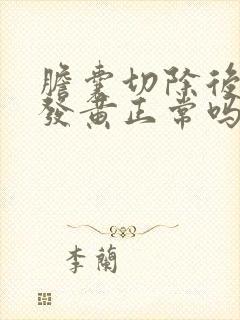 膽囊切除後
發黃正常嗎
李蘭